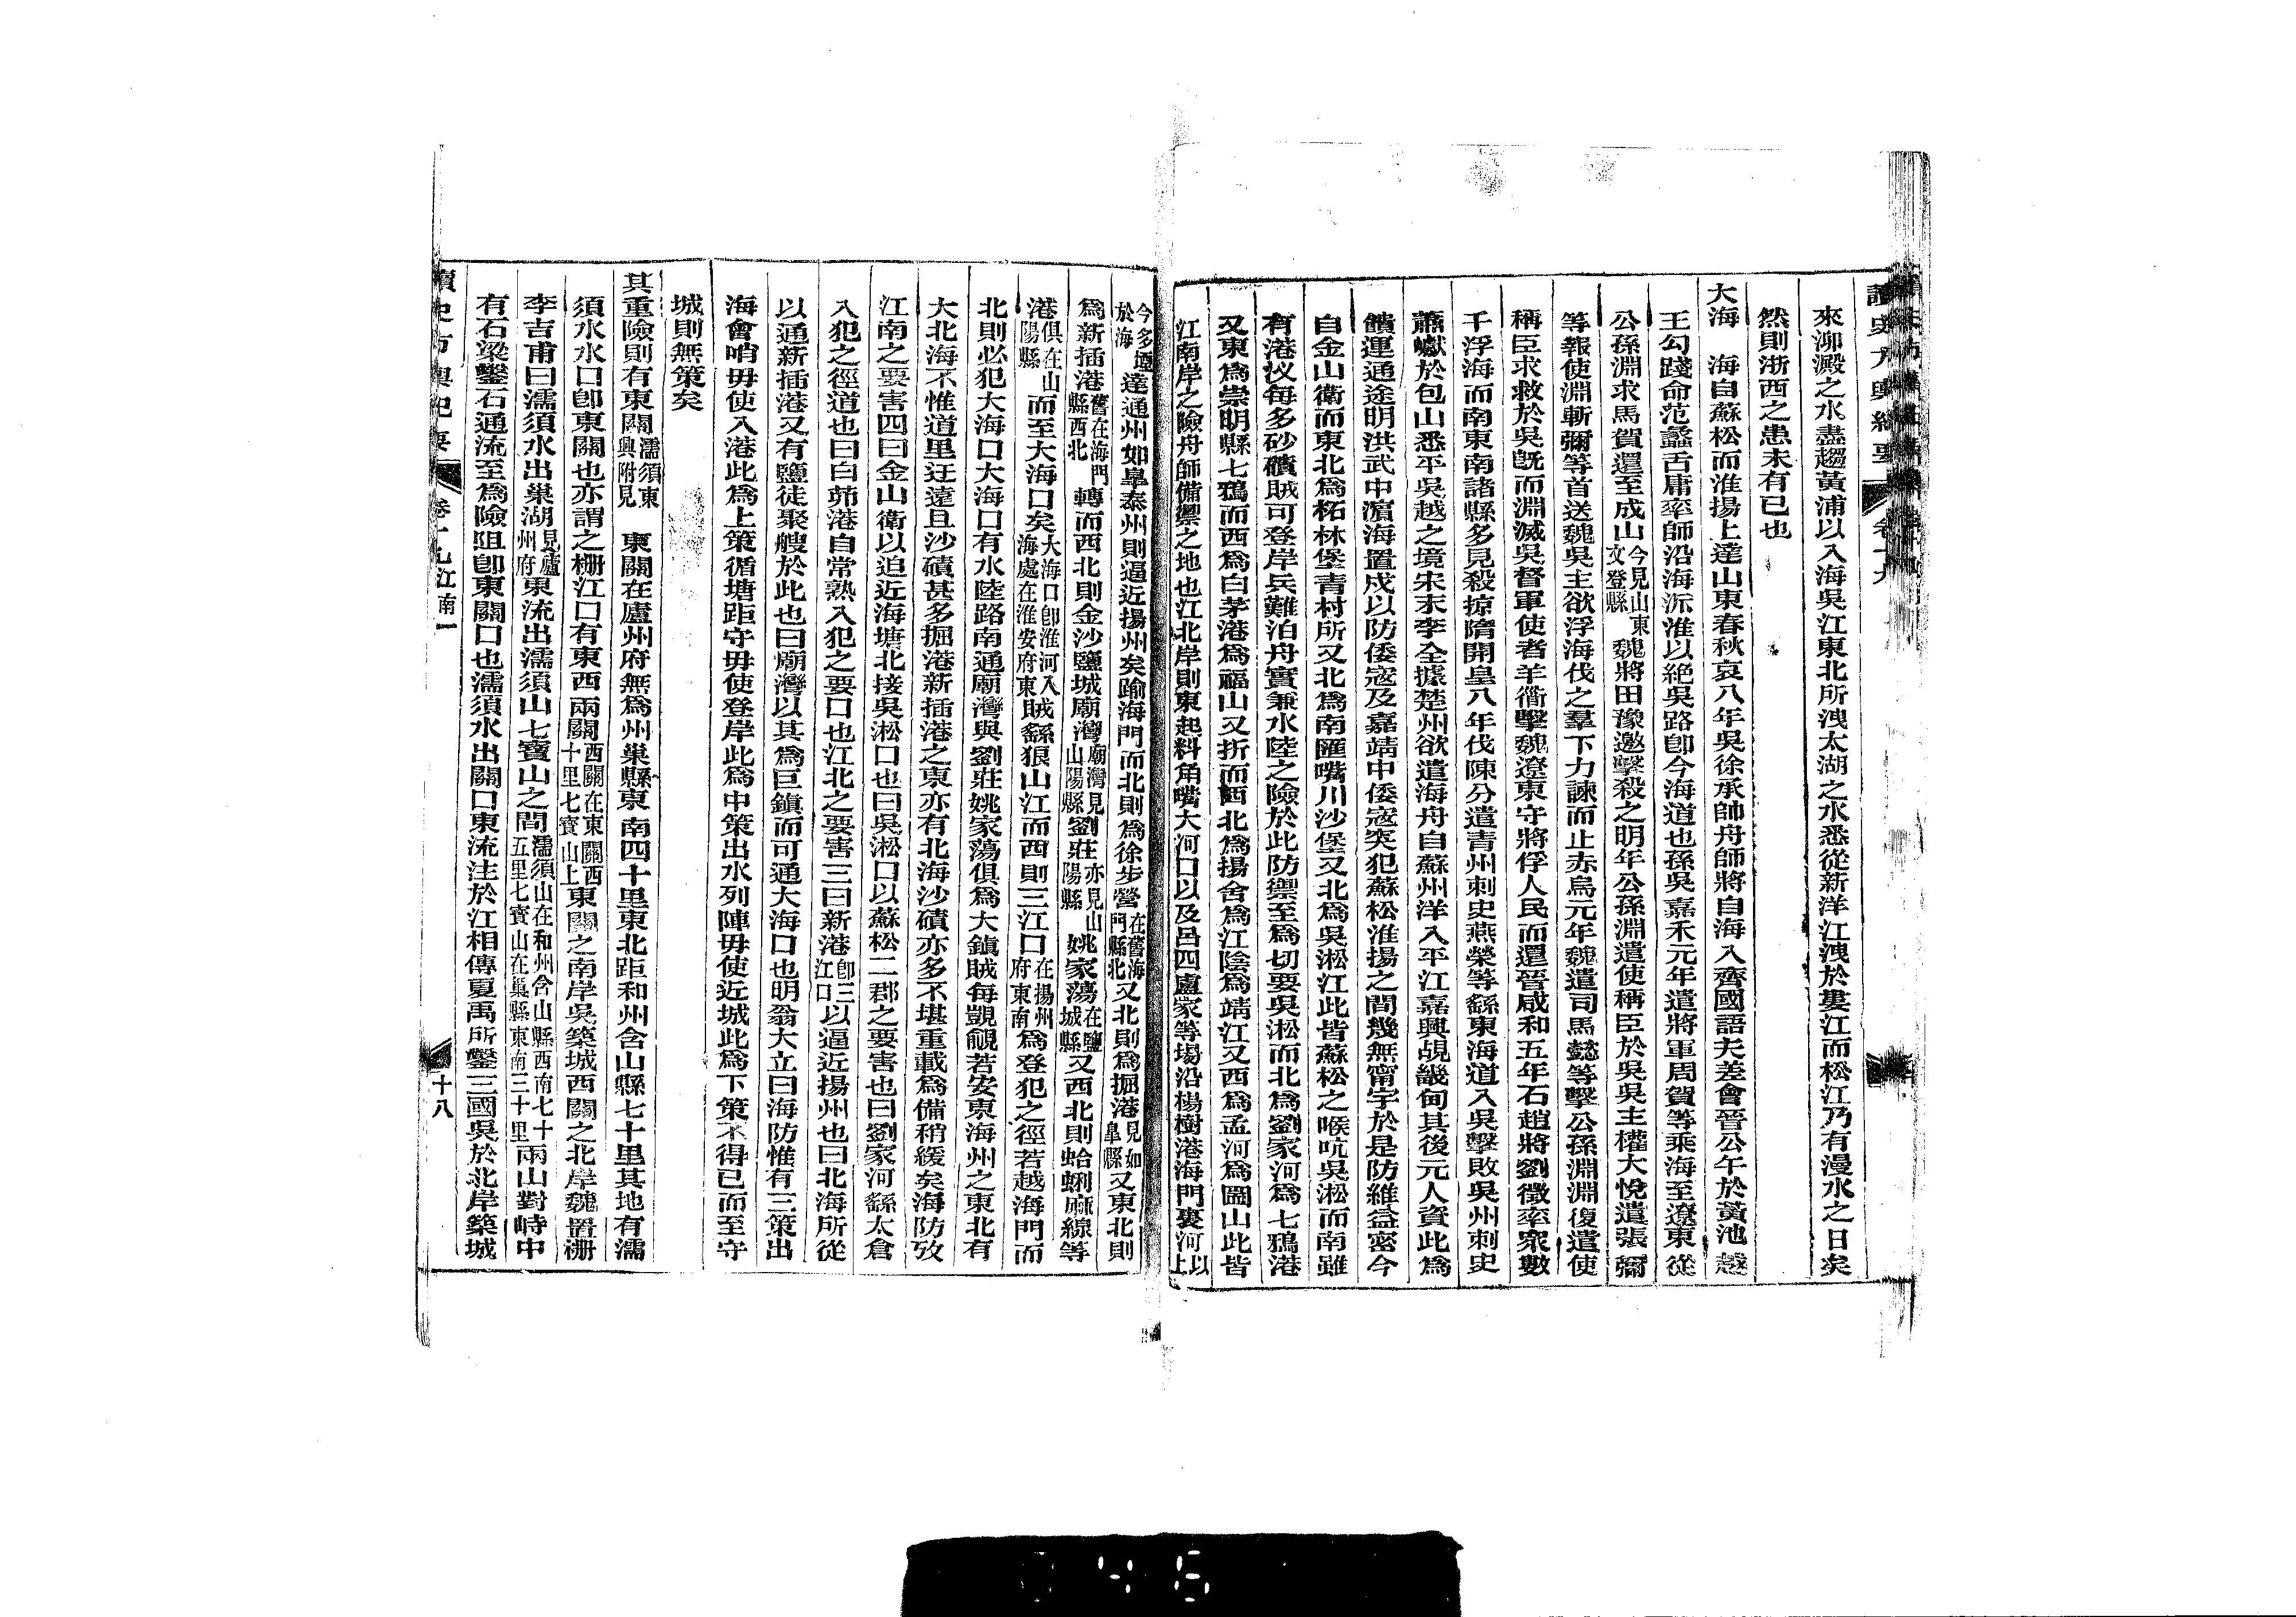 讀史方輿紀要 卷十九
來泖澱之水盡趨黃浦以入海吳江東北所洩太湖之水悉從新洋江洩於婁江而松江乃有漫水之日矣
然則浙西之患未有已也
大海 海自蘇松而淮揚上達山東春秋哀八年吳徐承帥舟師將自海入齊國語夫差會晉公午於黃池越
王勾踐命范蠡舌庸率師沿海泝淮以絶吳路卽今海道也孫吳嘉禾元年遣將軍周賀等乘海至遼東從
公孫淵求馬賀還至成山今見山東文登縣魏將田豫邀擊殺之明年公孫淵遣使稱臣於吳吳主權大悅遣張彌
等報使淵斬彌等首送魏吳主欲浮海伐之羣下力諫而止赤烏元年魏遣司馬懿等擊公孫淵淵復遣使
稱臣求救於吳旣而淵滅吳督軍使者羊衜擊魏遼東守將俘人民而還晉咸和五年石趙將劉徵率衆數
千浮海而南東南諸縣多見殺掠隋開皇八年伐陳分遣青州刺史燕榮等繇東海道入吳擊敗吳州刺史
蕭巘於包山悉平吳越之境宋末李全據楚州欲遣海舟自蘇州洋入平江嘉興覘畿甸其後元人資此爲
饋運通途明洪武中濵海置戍以防倭寇及嘉靖中倭寇突犯蘇松淮揚之間幾無甯宇於是防維益密今
自金山衛而東北爲柘林堡青村所又北爲南匯嘴川沙堡又北爲吳淞江此皆蘇松之喉吭吳淞而南雖
有港汊每多砂磧賊可登岸兵難泊舟實兼水陸之險於此防禦至爲切要吳淞而北爲劉家河爲七鴉港
又東爲崇明縣七鴉而西爲白茅港爲福山又折而西北爲揚舍爲江陰爲靖江又西爲孟河爲圌山此皆
江南岸之險舟師備禦之地也江北岸則東起料角嘴大河口以及呂四盧家等場沿楊樹港海門裏河以上
今多堙於海達通州如皐泰州則逼近揚州矣踰海門而北則爲徐步營在舊海門縣北又北則爲掘港見如皐縣又東北則
爲新插港舊在海門縣西北轉而西北則金沙鹽城廟灣廟灣見山陽縣劉莊亦見山陽縣姚家蕩在鹽城縣又西北則蛤蜊麻線等
港俱在山陽縣而至大海口矣大海口卽淮河入海處在淮安府東賊繇狼山江而西則三江口在揚州府東南爲登犯之徑若越海門而
北則必犯大海口大海口有水陸路南通廟灣與劉莊姚家蕩俱爲大鎭賊每覬覦若安東海州之東北有
大北海不惟道里迂遠且沙磧甚多掘港新插港之東亦有北海沙磧亦多不堪重載爲備稍緩矣海防攷
江南之要害四曰金山衛以迫近海塘北接吳淞口也曰吳淞口以蘇松二郡之要害也曰劉家河繇太倉
入犯之徑道也曰白茆港自常熟入犯之要口也江北之要害三曰新港卽三江口以逼近揚州也曰北海所從
以通新插港又有鹽徒聚艘於此也曰廟灣以其爲巨鎭而可通大海口也明翁大立曰海防惟有三策出
海會哨毋使入港此爲上策循塘距守毋使登岸此爲中策出水列陣毋使近城此爲下策不得已而至守
城則無策矣
其重險則有東關濡須東興附見 東關在廬州府無爲州巢縣東南四十里東北距和州含山縣七十里其地有濡
須水水口卽東關也亦謂之柵江口有東西兩關西關在東關西十里七寶山上東關之南岸吳築城西關之北岸魏置柵
李吉甫曰濡須水出巢湖見廬州府東流出濡須山七寶山之間濡須山在和州含山縣西南七十五里七寶山在巢縣東南三十里兩山對峙中
有石梁鑿石通流至爲險阻卽東關口也濡須水出關口東流注於江相傳夏禹所鑿三國吳於北岸築城
讀史方輿紀要 卷十九江南一 十八